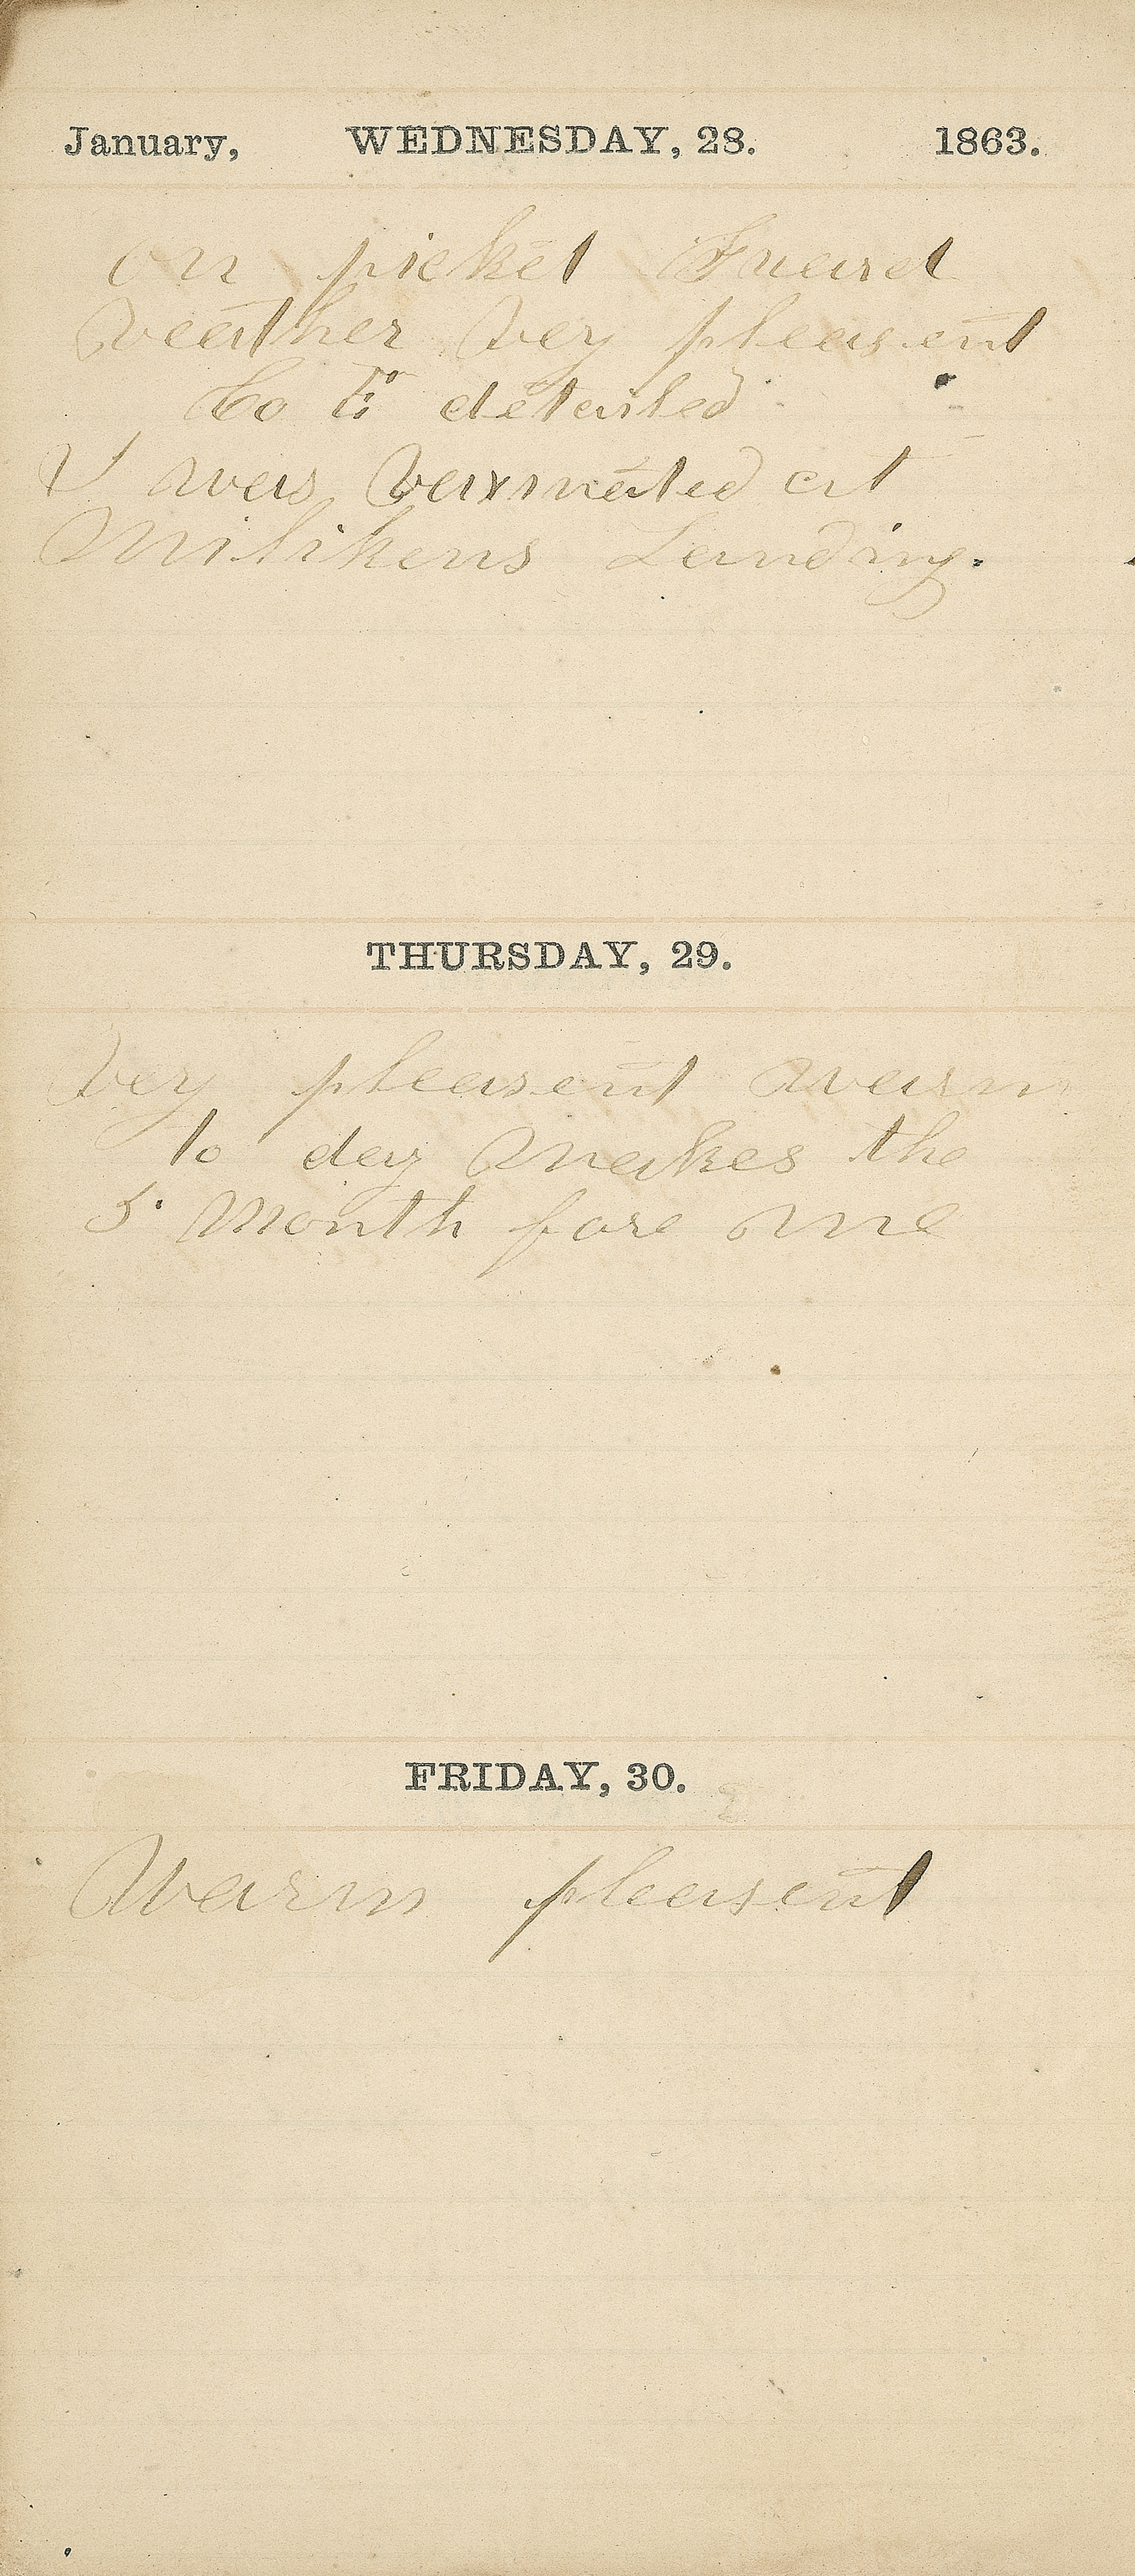 January, WEDNESDAY, 28. 1863.
on picket Guard
weather vey pleasent
Co E detailed
I was vaxinated at
Milikens Landing.
THURSDAY, 29.
Vey pleasent warm
to day makes the
5 month fore me
FRIDAY, 30.
Warm pleasent